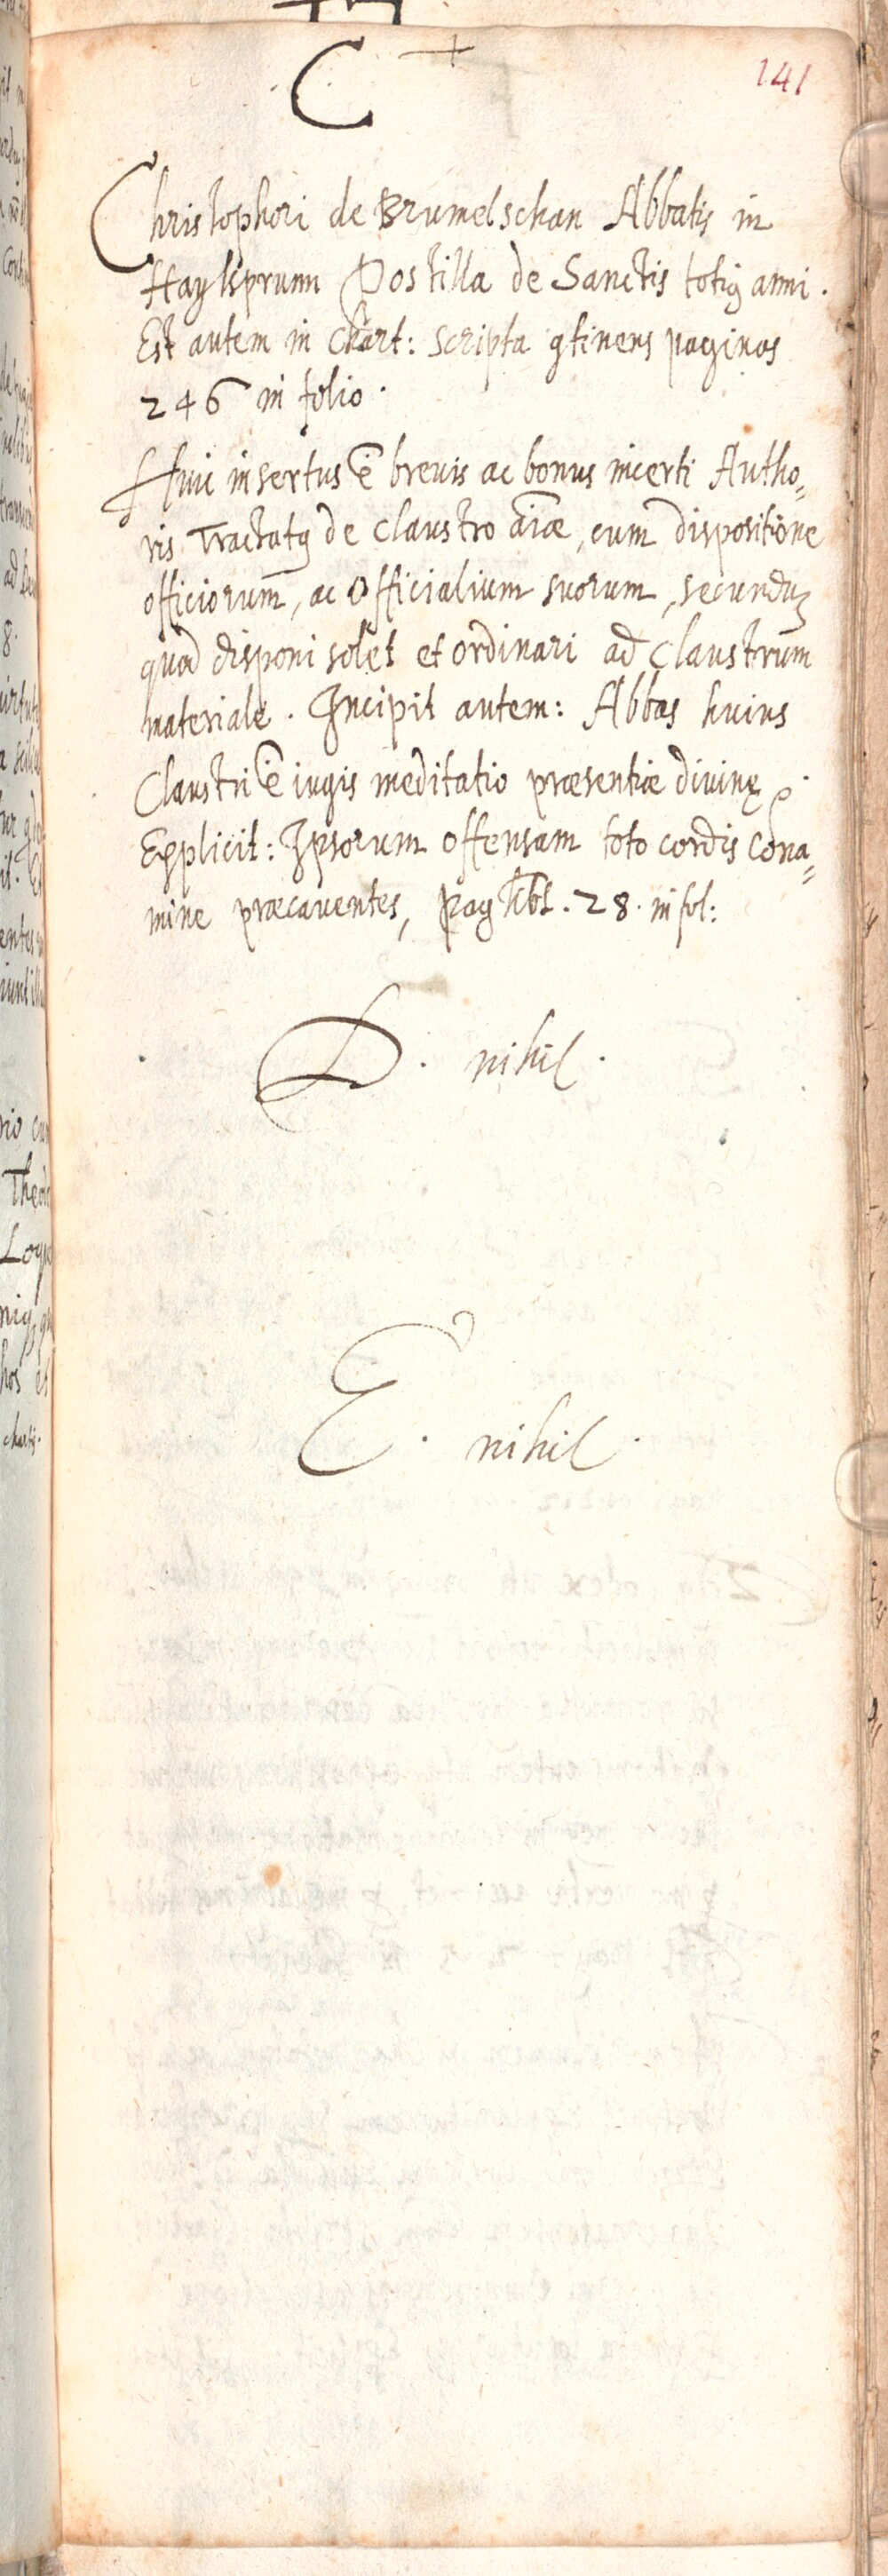 C
141
Christophori de Brumelschan Abbatis in
Haylsprunn Postilla de Sanctis totiꝰ anni.
Est autem in Chart: scripta ꝯtinens paginas
246 in folio.
Huic insertus ē brevis ac bonus incerti Autho„
ris Tractatꝰ de claustro aīæ, cum dispositione
officiorum, ac Officialium suorum, secundū
quod disponi solet et ordinari ad Claustrum
materiale. Incipit autem: Abbas huius
Claustri ē iugis meditatio præsentiæ divinę.
Explicit: Ipsorum offensam toto cordis cona„
mine præcaventes, pag. 28. in fol:
D. nihil.
E. nihil.